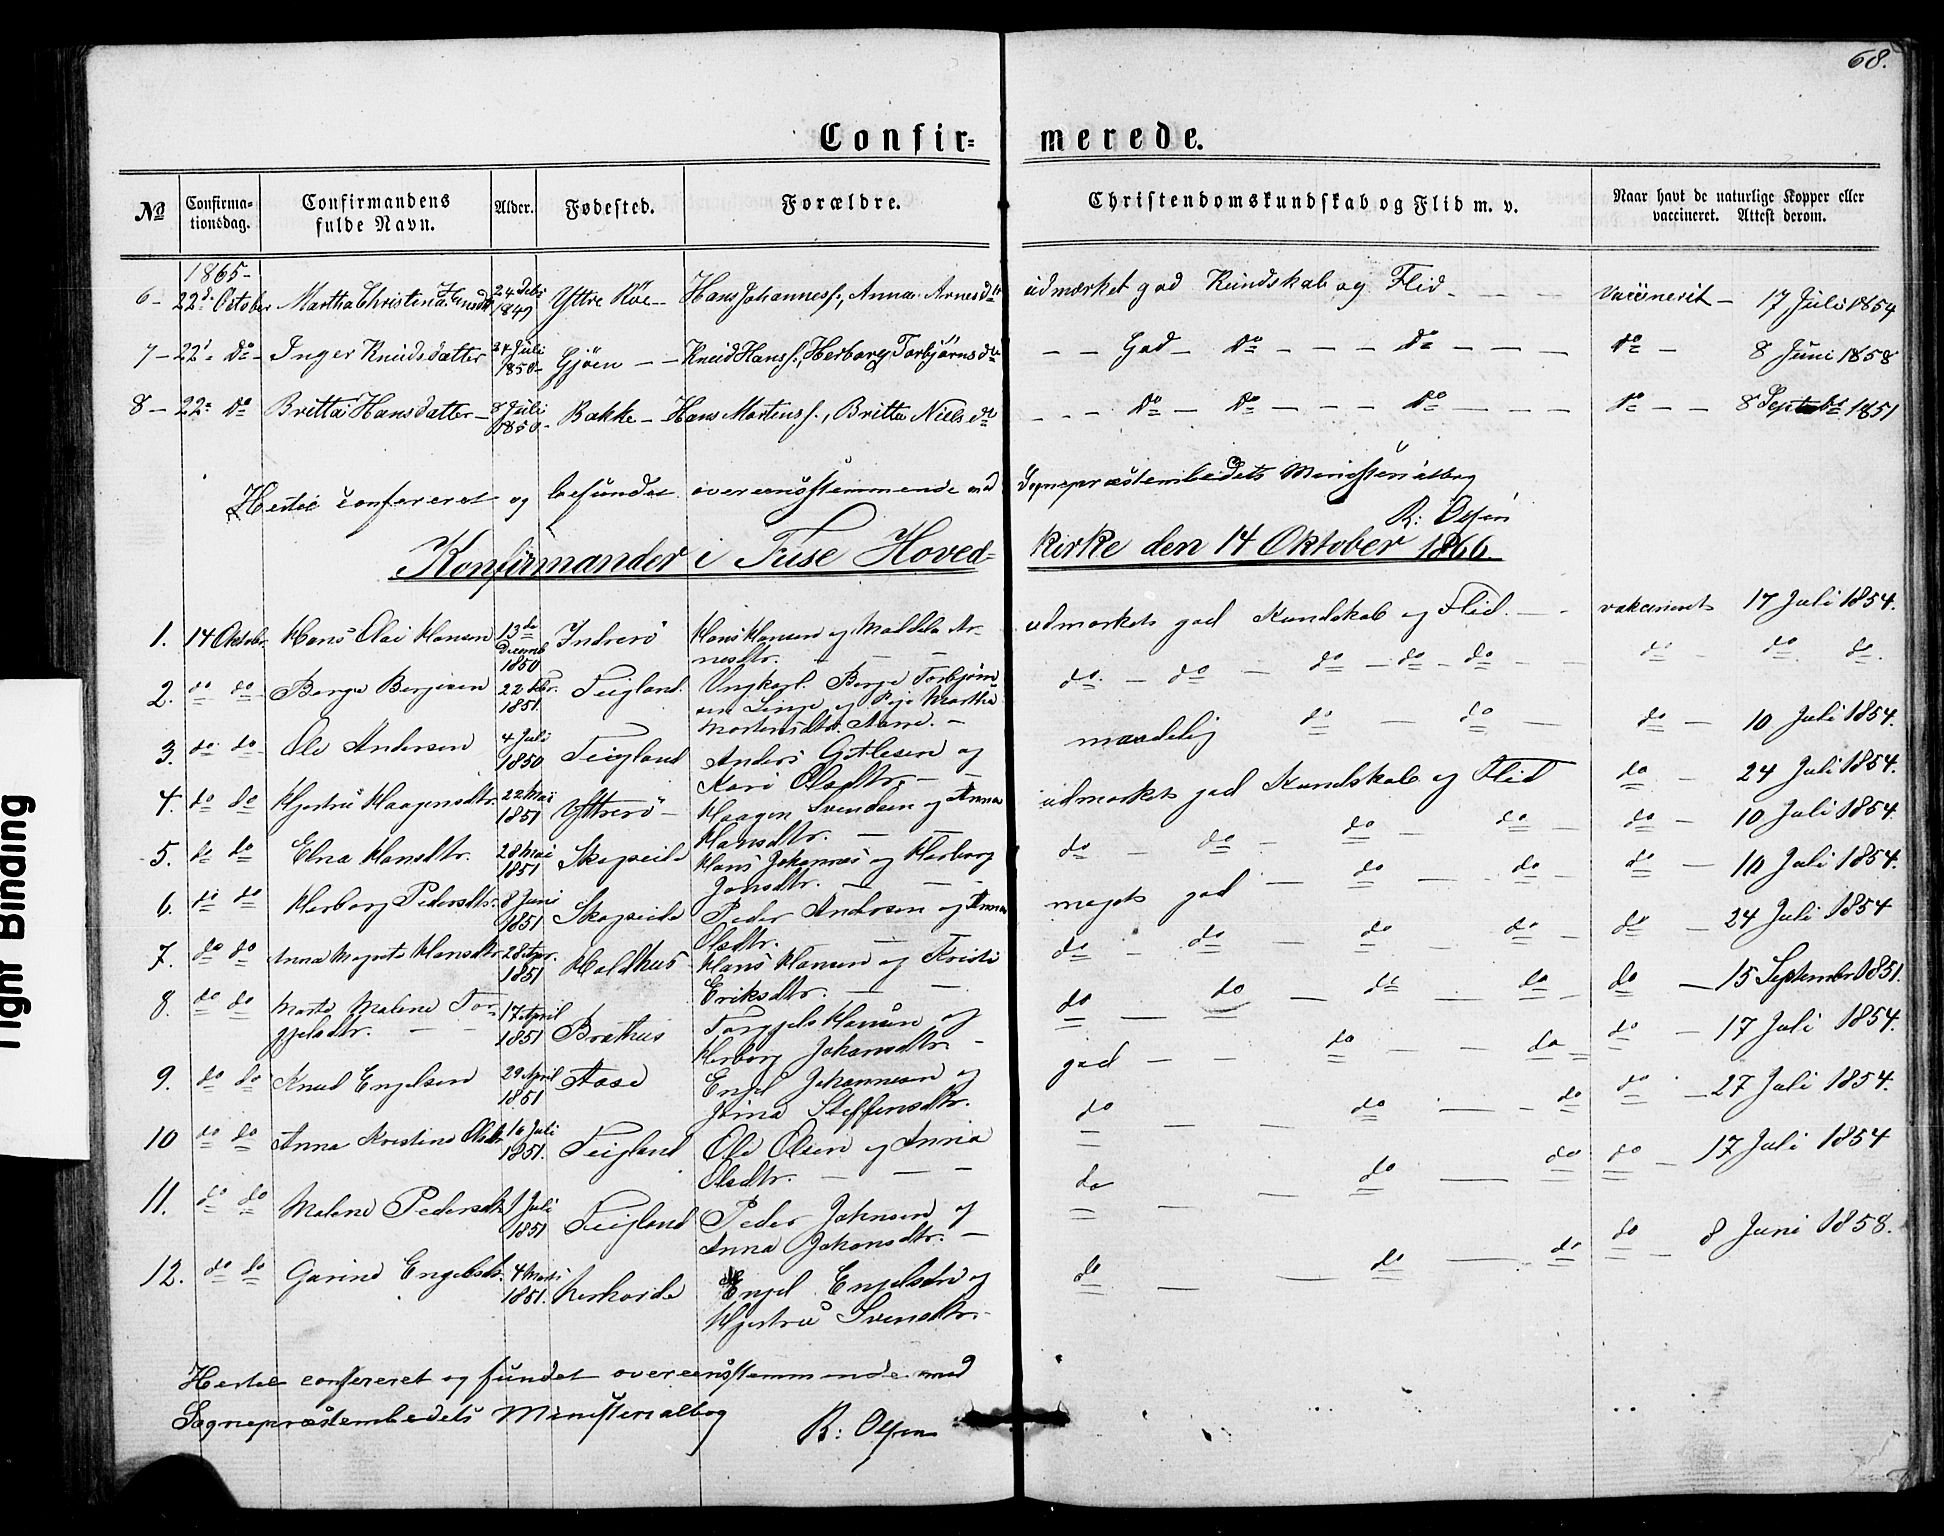 68.
Confirmerede.
No Confirmationsdag. Confirmandens fulde Navn. Alder. Fødested. Forældre. Christendomskundskab og Flid m. v. Naar havt de naturlige Kopper eller vaccineret. Attest derom.
1865-
6- 22d October Martha Christina 24 1849 Yttre Røe - Hans Johannesf., Anna Arnesdtr udmærket god Kundskab og Flid - - - Vaccineret - 17 Juli 1854
7- 22' do - Inger Knudsdatter 24 Juli 1850- Gjøen - - Knud Hansf., Herborg Torbjørnsdtr - - God - do - - - do - - - do - 8 Juni 1858
8 - 22 do Britta Hansdatter - 8 Juli 1850- Bakke - Hans Mortensf., Britta Nielsdtr - - - do - do - - - do - - - do - - 8 Septbr 1851
Hertil confereret og befundet overeensstemmende med Sognepræstembedets Ministerialbog
R: Olsen
Konfirmander i Fuse Hoved- kirke den 14 Oktober 1866.
1. 14 Oktober Hans Olai Hansen 13de Decemb 1850 Indrerö Hans Hansen og Maldela Ar-
nesdtr. - - udmerkets god Kundskab og Flid - - vakcineret 17 Juli 1854.
2. do do Børge Børgesen 22 Febr. 1851. Teigland. Ungkarl Børge Torbjørn-
sen Linge og Pige Martha
Mortensdtr. Aarre. - do - do - do - do - do - - do - do do.
3. do do Ole Andersen 4 Juli 1850 Teigland Anders Gitlesen og
Kari Olsdtr. - - maadelig do - do - do - 10 Juli 1854.
4. do do Kjestrü Haagensdtr. 22 Mai 1851 Yttrerö - Haagen Svendsen og Anna
Hansdtr. - - udmerkets god Kundskab og Flid do - 24 Juli 1854.
5. do do Elna Hansdtr. 28 Mai 1851 Skogseide Hans Johannes og Herborg
Jonsdtr. - - do - do - do - do - do - 10 Juli 1854.
6. do do Herborg Pedersdtr. 8 Juni 1851 Skogseide Peder Andersen og Anna
Olsdtr. - - megets god - do - do - do - 10 Juli 1854.
7. do do Anna Magrete Hansdtr. 28 Apr. 1851 Holdhus Hans Hansen og Kristi
Eriksdtr. - - do - do - do - do - do - 24 Juli 1854
8. do do Marta Malene Tor-
gjelsdtr. - - 17 April 1851 Brathus Torgjels Hansen og
Herborg Johansdtr. - do - do - do - do - do - 15 Septembr 1851.
9. do do Knud Engelsen 29 April 1851 Aase Engel Johannesen og
Stina Steffensdtr. god - - do - - do - do - 17 Juli 1854.
10 do do Anna Kristine Olsdtr. 16 Juli 1851. Teigland Ole Olsen og Anna
Olsdtr. - - do - - do - - do do - 27 Juli 1854.
11. do do Malene Pedersdtr. 1 Juli 1851 Teigland Peder Johnsen og
Anna Johansdtr. - do - - do - do do - 17 Juli 1854
12. do do Garine Engelsdtr. 4 Marts 1851. Engel Engelsen og
Kjestrü Svensdtr. - do - - do - do do - 8 Juni 1858.
Hertil confereret og fundet overeensstemmende med
Sognepræstembedets Ministerialbog
R: Olsen
Tight Binding